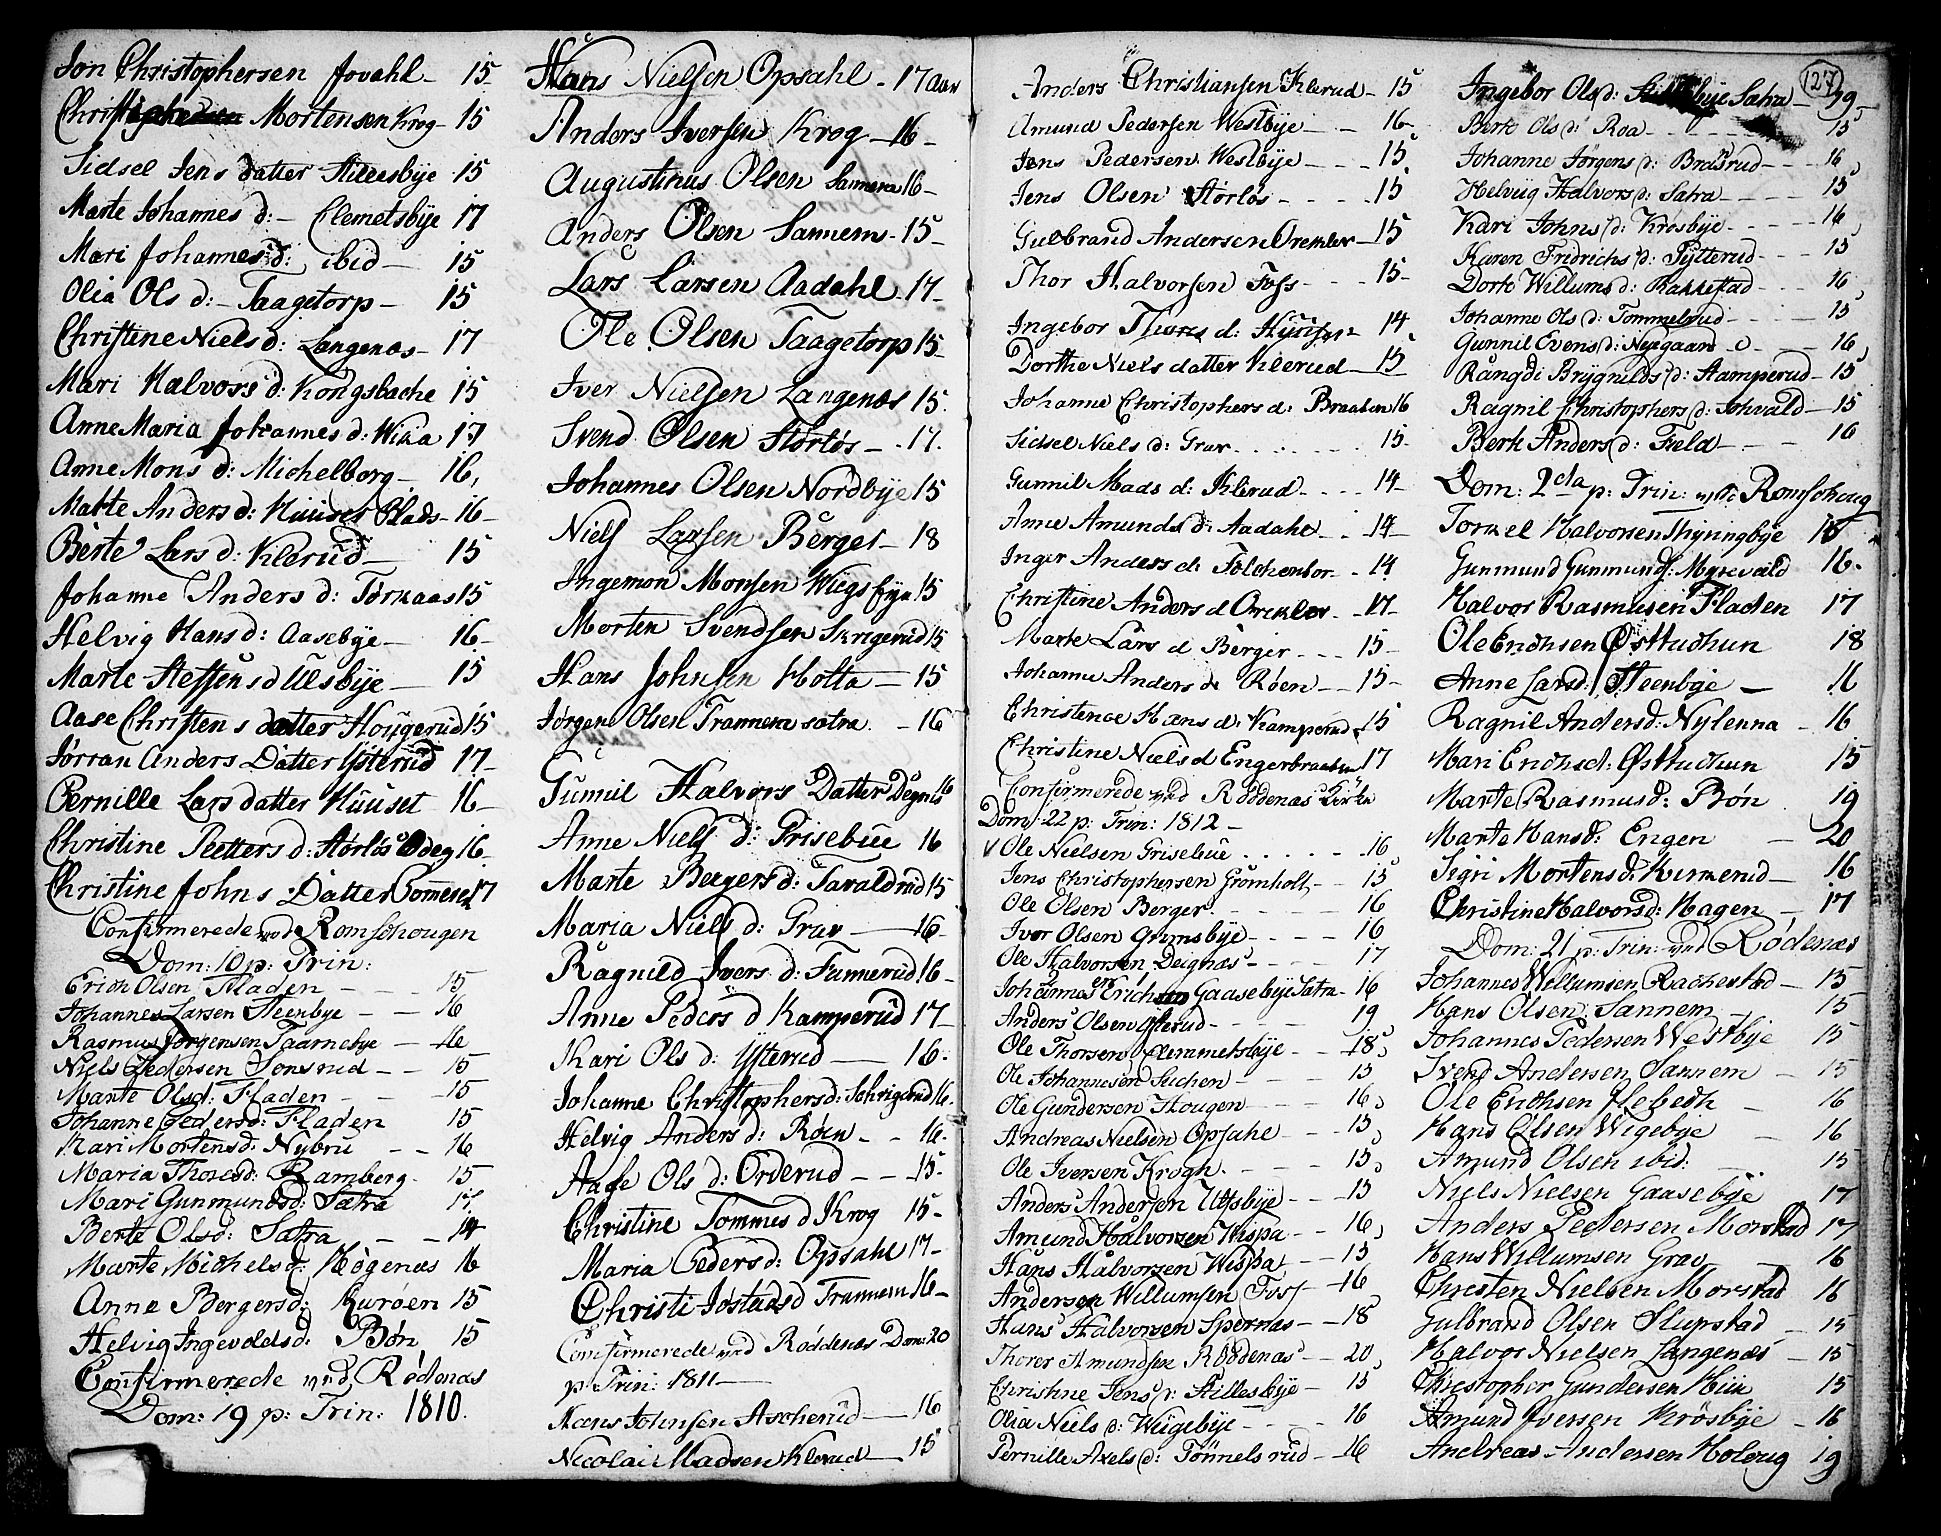 Jon Christophersen Jovahl - 15
Mortensen Krog - 15
Sidsel Jens datter Stillesbÿe 15
Marte Johannes d: - Clemetsbÿe 17
Mari Johannes d: ibid - 15
Olia Ols d: - Taagetorp - 15
Christine Niels d: Langenæs - 17
Mari Halvors d: Kongsbache 15
Anne Maria Johannes d: Wika 17
Anne Mons d: Michelborg - 16,
Marte Anders d: Huuset Plads - 16 -
Berte Lars d: Klerud - 15
Johanne Anders d: Tørnaas 15
Helvig Hans d: Aasebÿe - 16 -
Marte Steffens d Ulsbÿe - 15
Aase Christens datter Hougerud 15
Jørran Anders Datter Ysterud 17 -
Pernille Lars datter Huuset 16 -
Christine Peetters d: Størløs Ødeg 16
Christine Johns Datter 17
Confirmerede ved Romschougen
Dom: 10 p: Trin:
Erich Olsen Fladen - - - 15
Johannes Larsen Steenbye - - 16
Rasmus Jørgensen Taarnebye - 16
Niels Pedersen Sonsrud - - 15
Marte Olsd: Fladen - - 15
Johanne Pedersd: Fladen 15
Kari Mortensd: Nybru - - 16
Maria Thoresd: Ramberg - 15
Mari Gunmundsd: Sætra 17
Berte Olsd: Sætra - - 14
Marte Michelsd: Høgenæs 16
Anne Bergersd: Kurøen 15
Helvig Ingevoldsd: Bøn 15
Confirmerede ved Rødenæs
Dom: 19 p: Trin: 1810.
Hans Nielsen Opsahl - 17 aar
Anders Iversen Krog - 16 -
Augustinus Olsen Sannem 16 -
Anders Olsen Sannem - 15 -
Lars Larsen Aadahl - 17 -
Ole Olsen Taagetorp 15 -
Iver Nielsen Langenæs 15.
Svend Olsen Størløs - - 17.
Johannes Olsen Nordbÿe 15
Niels Larsen Berger - 18
Ingemon Monsen 15
Morten Svendsen Skrigerud 15
Hans Johnsen Hotta - 15
Jørgen Olsen Trannem sætra - 16
Gunnil Halvors Datter Degnes 16
Anne Niels d: Grisebue 16
Marte Bergers d: Taraldrud 15
Maria Niels d: Grav - 16 -
Ragnild Ivers d: Funnerud 16 -
Anne Peders d Kamperud 17 -
Kari Ols d: Ysterud - 16 -
Johanne Christophersd: Schrigerud 16.
Helvig Anders d: Røen - - 16.
Aase Ols d: Orderud - - 15 -
Christine Tommes d Krog 15 -
Maria Peders d: Opsahl 17 -
Christi Jostads d Trannem 16 -
Confirmerede ved Røddenæs Dom: 20
p: Trin: 1811 -
Hans Johnsen Ascherud - 16
Nicolai Madsen Klerud - 15
Anders Christiansen Klerud - 15
Amund Pedersen Westbÿe - - 16 -
Jens Pedersen Westbÿe - - - 15
Jens Olsen Størløs - - - - 15
Gulbrand Andersen Orekler - 15
Thor Halvorsen Foss - - - 15 -
Ingebor Thores d: - 14
Dorthe Niels datter Klerud - 15
Johanne Christophers d: Braaten 16
Sidsel Niels d: Grav - - - 15 -
Gunnil Mads d: Klerud - - - 14 -
Anne Amunds d: Aadahl - - 14 -
Inger Anders d: - - 14
Christine Anders d Orekler - 17 -
Marte Lars d Berger - - - 15 -
Johanne Anders d: Røen - - 15 -
Christence Hans d: Kamperud - 15
Christine Niels d Engerbraaten 17
Confirmerede ved Røddenæs Kirke
Dom: 22 p: Trin: 1812 -
Ole Nielsen Grisebue - - - - 16
Jens Christophersen Gromholt - - 15
Ole Olsen Berger - - - - 16
Iver Olsen Grimsbÿe - - - - 16
Ole Halvorsen Deignæs - - - - 17
Johannes Erichsen Gaasebÿe Sætra - 16
Anders Olsen Ysterud - - - - 19
Ole Thorsen Clemmetsbÿe - - 18
Ole Johannesen Suchen - - - 15
Ole Gundersen Hougen - - - 16
Andreas Nielsen Opsahl - - - 15
Ole Iversen Krogh - - - - 15
Anders Andersen Ulsbÿe - - - 15
Amund Halvorsen Wispa - - - 16
Hans Halvorsen Wispa - - 15
Andersen Willumsen Foss - 16
Hans Halvorsen Spernæs - - 18
Thorer Amundsen Røddenæs - - 20
Christine Jens d: Stillesbÿe - - 15
Olia Niels d: Wiigebÿe - - - 16
Pernille Axels d: Tønnelsrud - - 16
127
Ingebor Ols d: Sætra - 29 -
Berte Ols d: Roa - - - - 15
Johanne Jørgens d: Braarud - - - 16
Helvig Halvors d: Sætra - - - - 15
Kari Johns d: Krosbÿe - - - - 16
Karen Fridrichs d: Pÿtterud - - - 15
Dorte Willums d: Rakkestad - - - 16
Johanne Ols d: Tommelrud - - - 15
Gunnil Evens d: Nÿegaard - - - 16
Rangdi Brÿgnilds d: Stamperud - 15
Ragnil Christophers d: Johvald - 15
Berte Anders d: Fjeld - - - 16
Dom: 2da p: Trin: ved Romschoug
Torkel Halvorsen 16
Gunmund Gunmunds: Myrevald 16 -
Halvor Rasmusen Fladen 17
Ole Erichsen Østtuchun 18
Anne Larsd: Steenbye - 16
Ragnil Andersd: Nylenna - 16
Mari Erichsd: Østtuchun 15
Marte Rasmusd: Bøn 19
Marte Hansd: Engen - 20
Sigri Mortensd: Kirmerud - 16
Christine Halvorsd: Hagen - 17
Dom: 21 p: Trin: ved Rødenæs
Johannes Willumsen Rachestad - 15
Hans Olsen Sannem - 15
Johannes Pedersen Westbÿe 15
Svend Andersen Sannem - 15
Ole Erichsen Flebech - 16
Hans Olsen Wigebye - 16
Amund Olsen ibid: - 15
Niels Nielsen Gaasebÿe 17
Anders Pedersen Morstad 17
Hans Willumsen Grav - 16
Christen Nielsen Morstad 16
Gulbrand Olsen Slupstad - 15
Halvor Nielsen Langenæs - 15
Christopher Gundersen Hiin 15
Amund Iversen Krøsbÿe - 16
Andreas Andersen Holeug 19